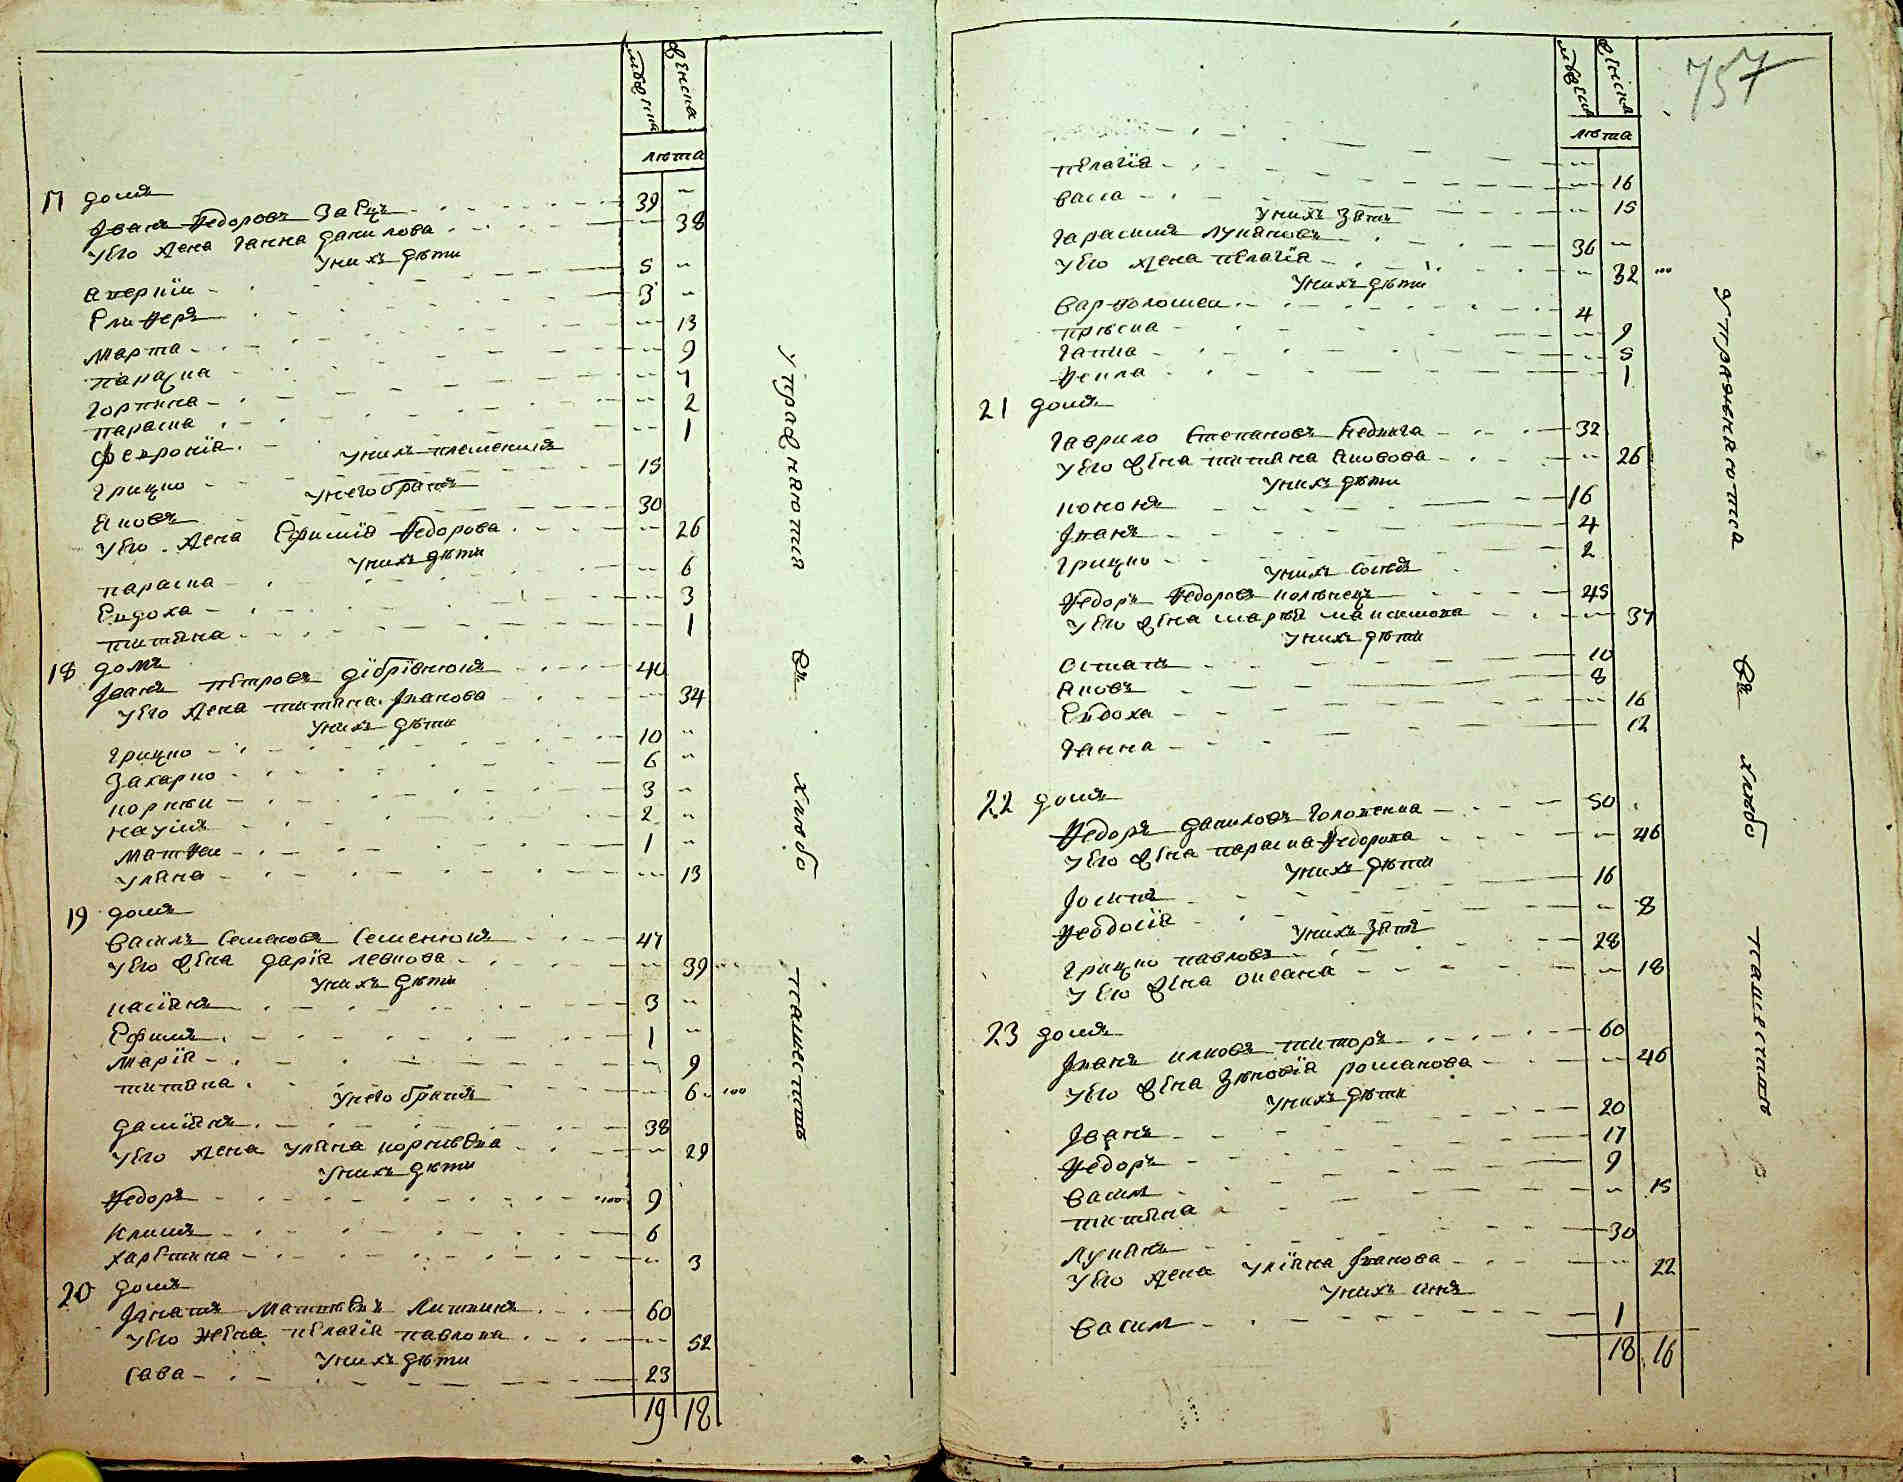 мужска женска
лѣта
17 домъ
Іванъ Ѳедоровъ Заецъ 39 —
У его жена Ганна Данилова — 38
У нихъ дѣти
Аверкіи 5 —
Елиферъ 3 —
Марта — 13
Параска — 9
Горпина — 7
Параска — 2
Февронія — 1
У нихъ племенникъ
Грицко 15
У него братъ
Яковъ 30
У его жена Ефимія Ѳедорова — 26
У нихъ дѣти
Параска — 6
Евдоха — 3
Титяна — 1
18 домъ
Іванъ Петровъ Дібрівнюкъ 40
У его жена Титяна Іванова — 34
У нихъ дѣти
Грицко 10 —
Захарко 6 —
Корнѣи 3 —
Наумъ 2 —
Матѳеи 1 —
Уляна — 13
19 домъ
Василь Семеновъ Семенюкъ 47
У его жена Дарія Левкова — 39
У нихъ дѣти
Касіянъ 3 —
Ефимъ 1 —
Марія — 9
Титяна — 6
У него братъ
Даміянъ 38
У его жена Уляна Корнѣева — 29
У нихъ дѣти
Ѳедоръ 9
Климъ 6
Харетина — 3
20 домъ
Ігнатъ Матвѣевъ Литвинъ 60
У его жена Пелагія Павлова — 52
У нихъ дѣти
Сава 23
19 18
Упражняются въ хлѣбо пашествѣ
757
мужска женска
лѣта
Пелагія — 16
Васса — 15
У нихъ зять
Гарасимъ Лукяновъ 36 —
У его жена Пелагія — 32
У нихъ дѣти
Варфоломеи 4
Прѣська — 9
Гапка — 5
Ѳекла — 1
21 домъ
Гаврило Степановъ 32
У его жена Титяна Яковова — 26
У нихъ дѣти
Кононъ 16
Іванъ 4
Грицко 2
У нихъ сосѣдъ
Ѳедоръ Ѳедоровъ 45
У его жена Марія Максимова — 37
У нихъ дѣти
Остапъ 10
Яковъ 8
Евдоха — 16
Ганна — 12
22 домъ
Ѳедоръ Даниловъ 50
У его жена Параска Ѳедорова — 46
У нихъ дѣти
Іосипъ 16
Ѳеодосія — 8
У нихъ зять
Грицко Павловъ 28
У его жена Оксана — 18
23 домъ
Іванъ Илковъ Титоръ 60
У его жена Зѣновія Романова — 46
У нихъ дѣти
Іванъ 20
Ѳедоръ 17
Васил 9
Титяна — 15
Лукянъ 30
У его жена Уліяна Іванова — 22
У нихъ синъ
Васил 1
18 16
Упражняются въ хлѣбо пашествѣ